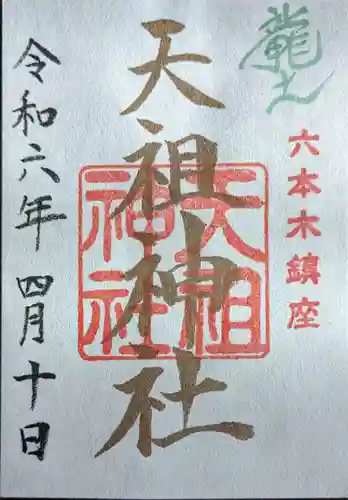 龍土
六本木鎮座
天祖神社
天祖
神社
令和六年 四月十日